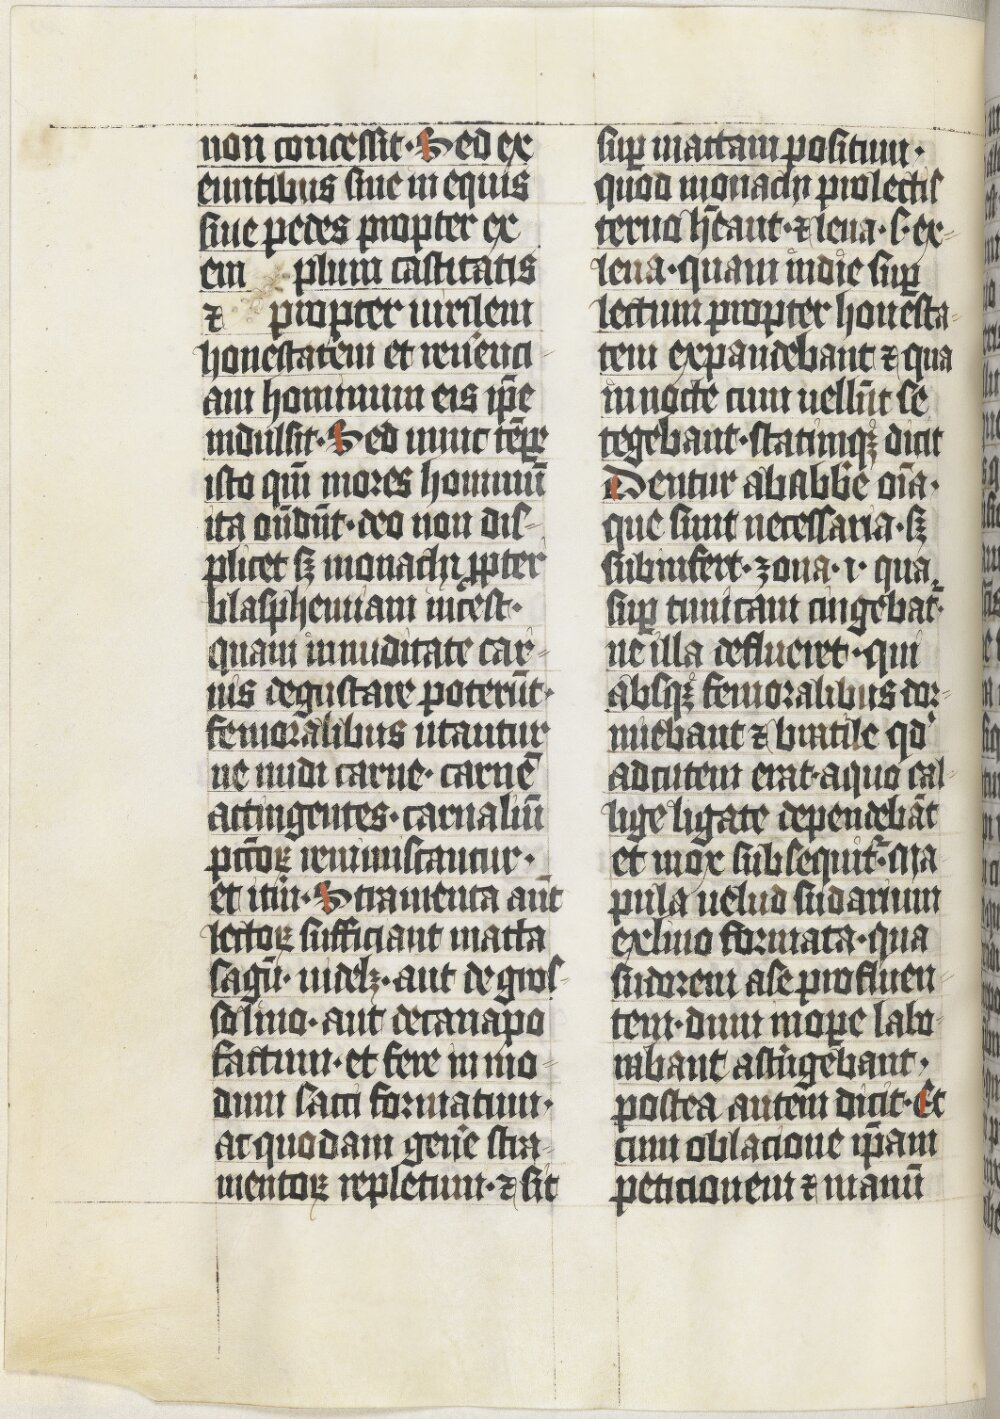 non concessit· Sed ex
euntibus siue in equis
siue pedes propter ex
em plum castitatis
⁊ propter uirilem
honestatem et reu͛enci
am hominum eis ip̄e
indulsit· Sed nunc tēꝑe
isto qm̄ mores hominū
ita oñdūt· deo non dis
plicet sꝫ monachi ꝓpter
blasphemiam incest·
quam inmūditate car
nis degustare poterūt·
femoralibus utantur
ne nudi carne· carnē
attingentes· carnaliū
pctōꝝ reminiscantur·
et itm̄· Stramenta aūt
lectoꝝ sufficiant matta
sagū· uidelꝫ· aut de gros
so lino· aut de canapo
factum· et fere in mo
dum sacci formatum·
ac quodam gen͛e stra
mentoꝝ repletum· ⁊ sit
suꝑ mattam positum·
quod monachi pro lectis
terno hēant· ⁊ lena· s· ex
lena· quam in die suꝑ
lectum propter honesta
tem expandebant ⁊ qua
in nocte cum uellūt se
tegebant· statimqꝫ dicit
Dentur ab abbe oīa·
que sunt necessaria· sꝫ
subinfert· zona· ı· qua
suꝑ tunicam cingebāt·
ne illa deflueret· qui
absqꝫ femoralibus dor
miebant ⁊ bratile qd̓
ad cutem erat· a quo cal
lige ligate dependebāt
et mox subsequit᷑· ma
pula uelud sudarium
ex lino formata· qua
sudorem a se profluen
tem· dum in oꝑe labo
rabant astringebant·
postea autem dicit· Et
cum oblacione ip̄am
peticionem ⁊ manū